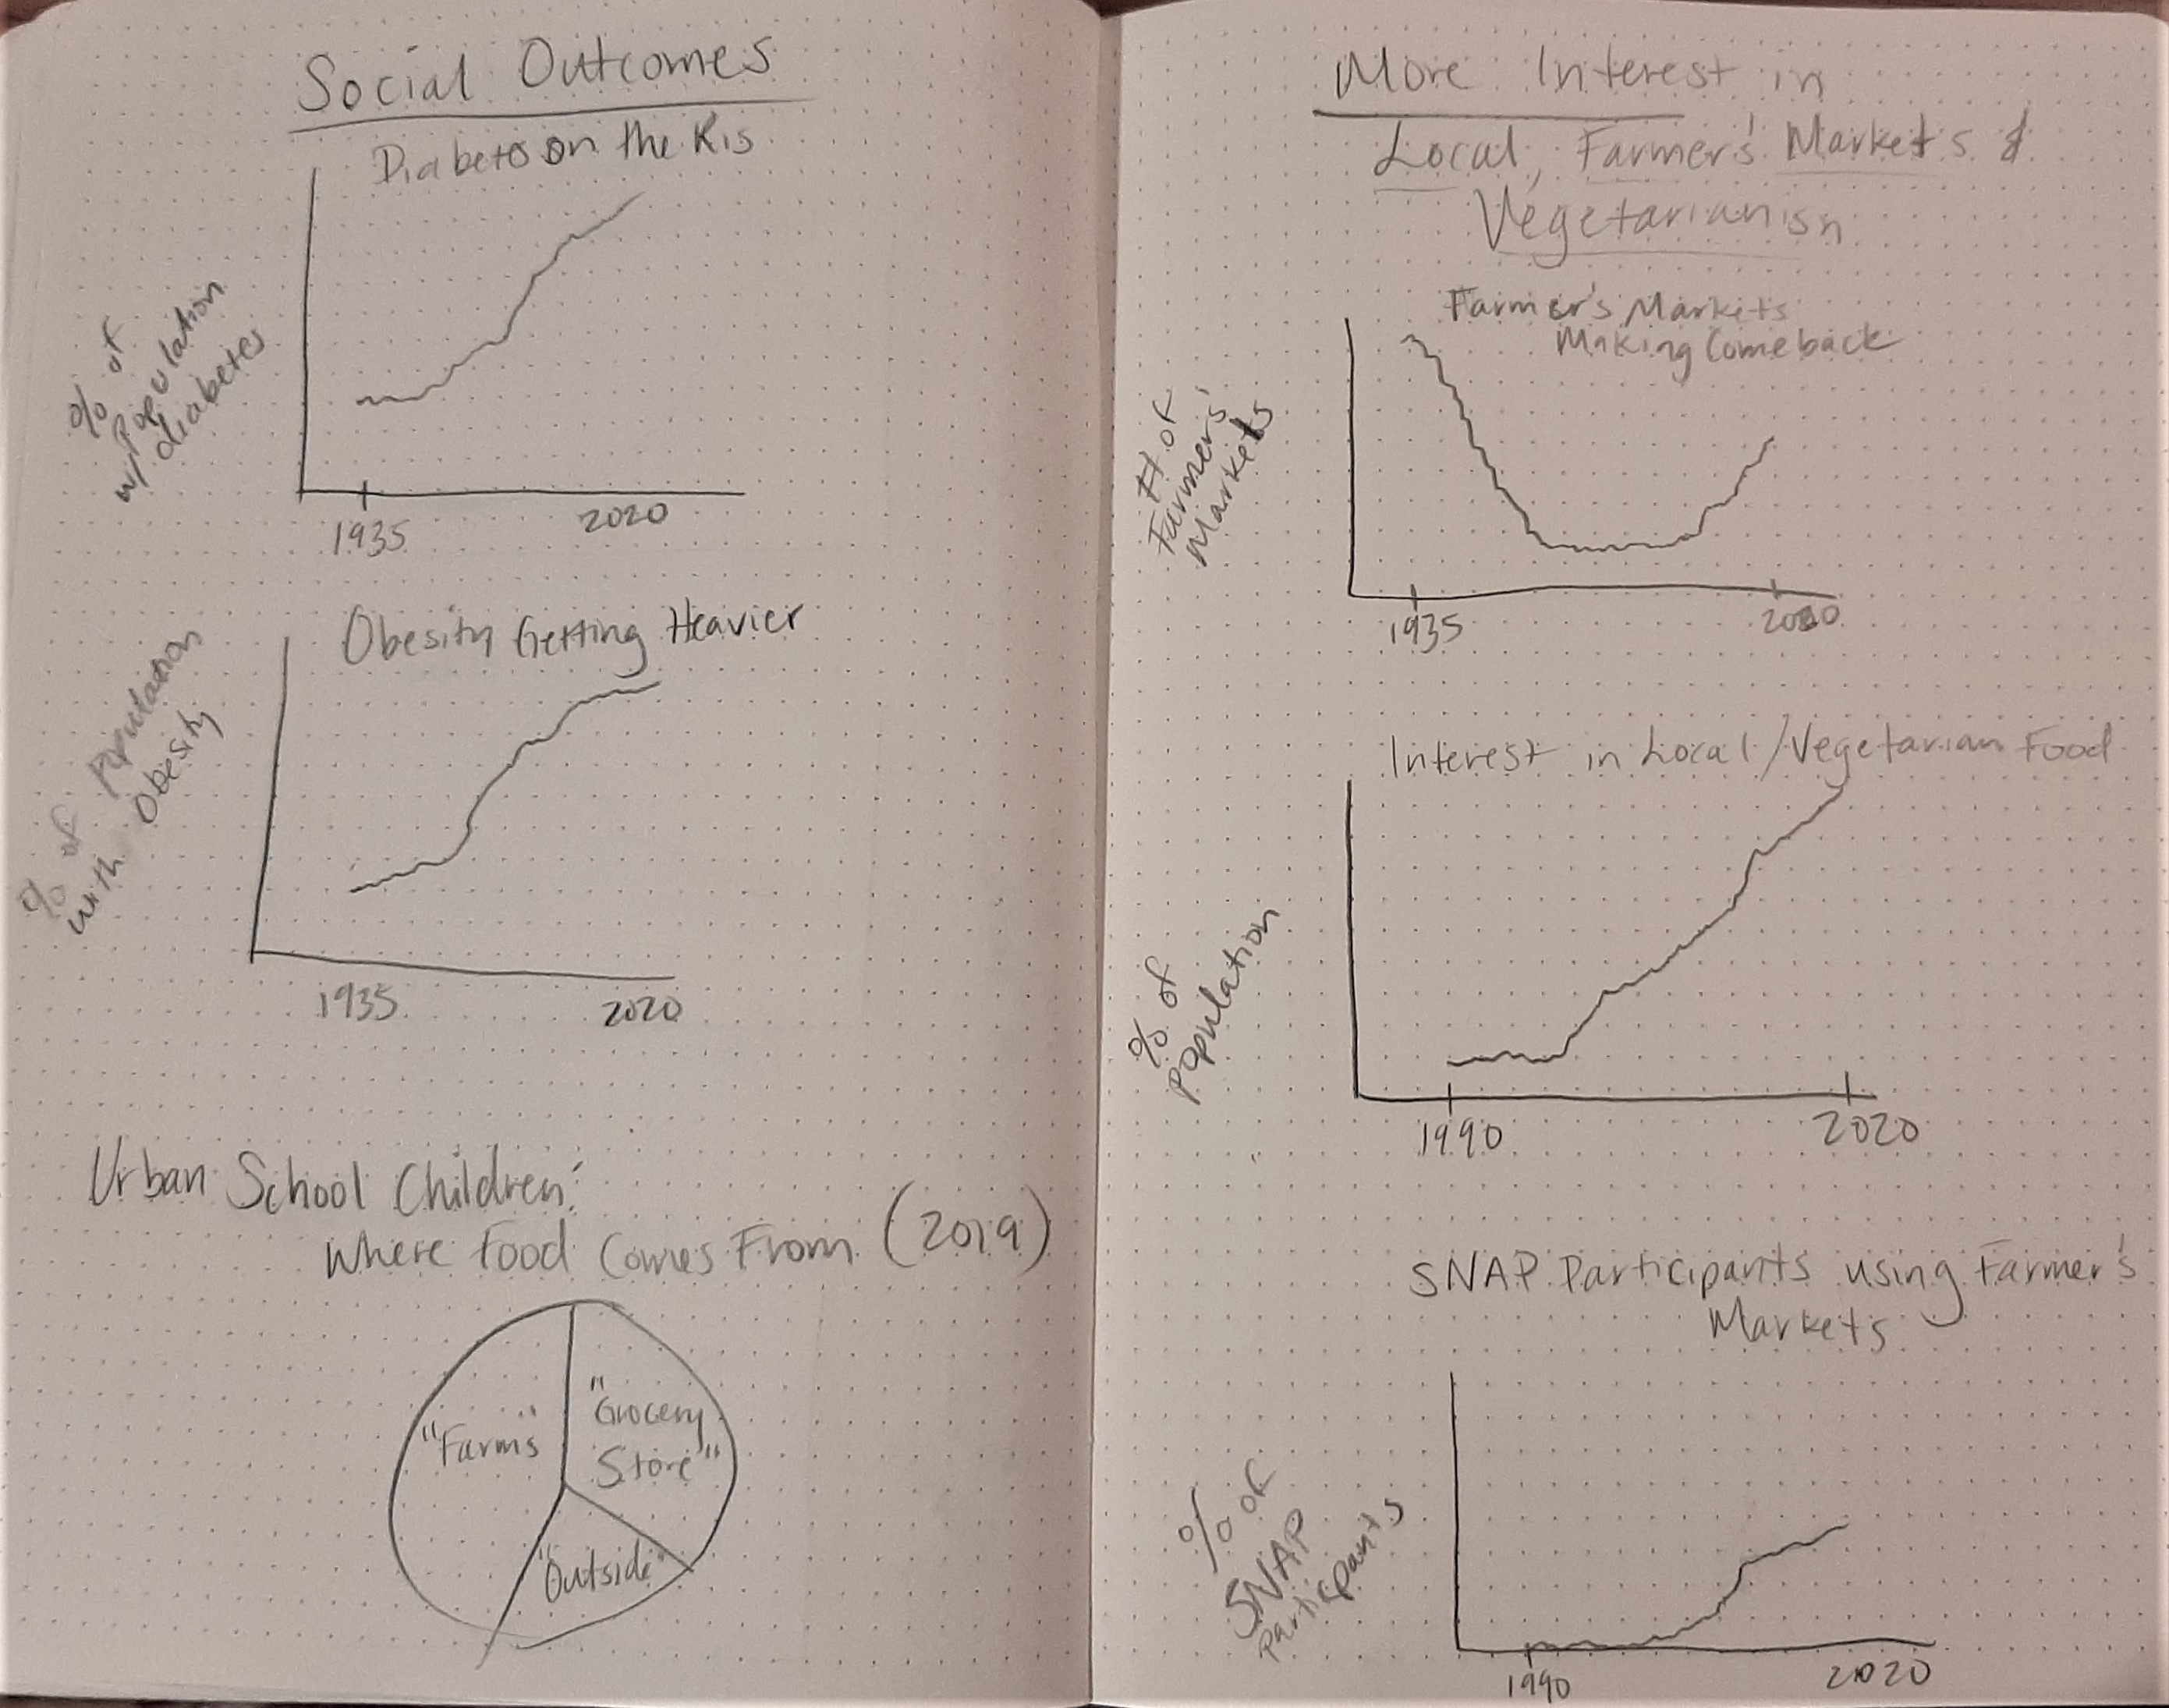 Social Outcomes
Diabetes on the Ris
% of
Population
w/ diabetes
1935
2020
Obesity Getting Heavier
% of Population
with Obesity
1935
2020
Urban School Children:
Where Food Comes From (2019)
"Farms"
"Grocery
Store"
"Outside"
More Interest in
Local, Farmer's Markets &
Vegetarianism
Farmer's Markets
Making Comeback
# of
Farmers'
Markets
1935
2020
Interest in Local/Vegetarian Food
% of
Population
1990
2020
SNAP Participants using Farmer's
Markets
% of
SNAP
Participants
1990
2020